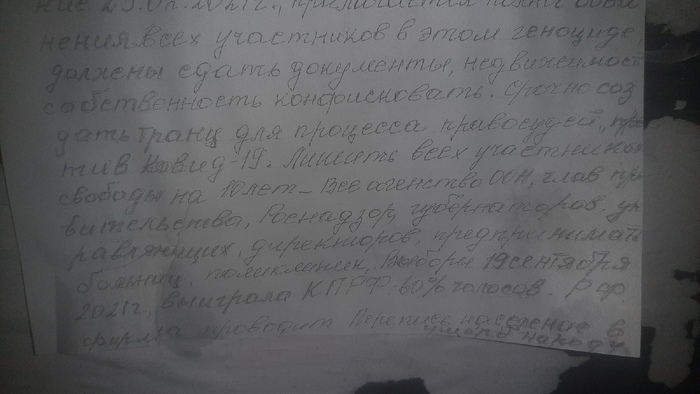 ние 25.02.2021г., приглашается полки обви
нения всех участников в этом геноциде,
должны сдать документы, недвижимост
собственность конфисковать. Срочно соз
дать транц для процесса правосудей, "про
тив Ковид-19. Лишить всех участников
свободы на 10 лет - Все агенство ООН, глав пра
вительства, Роснадзор, губернаторов, уп
равляющих, директоров, предпринимате
больниц, поликлиник, Выборы 19 сентября
2021г, выиграла КПРФ-60% голосов. РФ
фирма проводит Перепись население в
ущерб народу